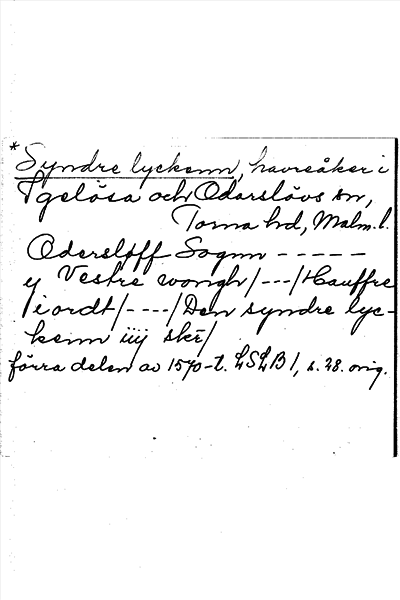 * Syndre lyckenn, havreåker i
Igelösa och Odarslövs sn,
Torna hd, Malm. l.
Oderslöff Sognn - - - - -
y Vestre wongh/---/Hauffre
/iordt/----/Den syndre lyc-
kenn iiij skr/
förra delen av 1570-t. LSLB 1, s. 28. orig.